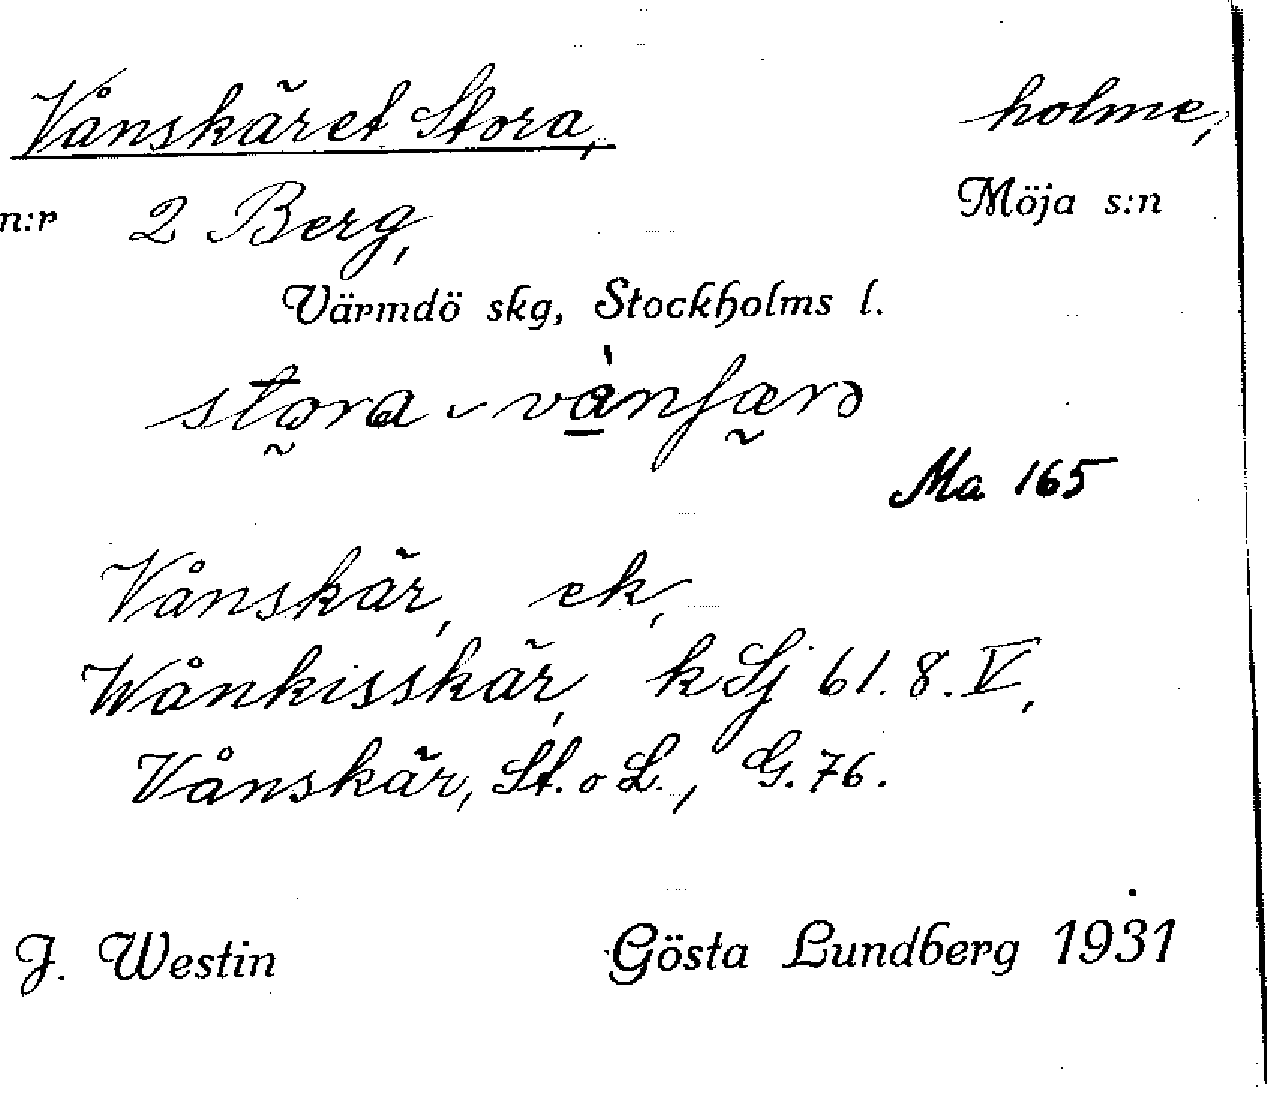 Vånskäret Stora, holme,
n:r 2 Berg, Möja s:n
Värmdö skg, Stockholms l.
Ma 165
Vånskär, ek,
Wånkisskär, k Sj 61. 8. V,
Vånskär, St. o L., G. 76.
J. Westin Gösta Lundberg 1931